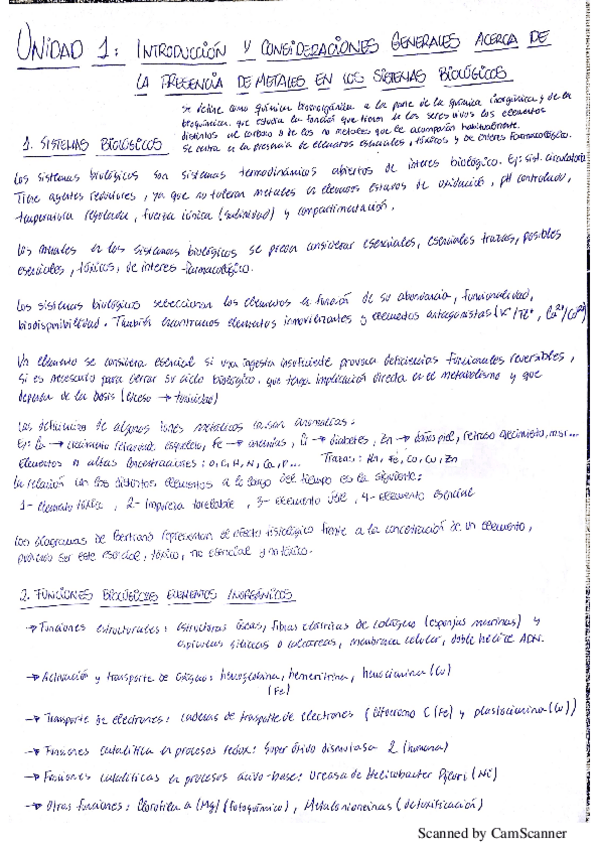 UNIDAD 1: INTRODUCCIÓN Y CONSIDERACIONES GENERALES ACERCA DE
LA PRESENCIA DE METALES EN LOS SISTEMAS BIOLÓGICOS
Se define como química bioinorgánica a la parte de la química inorgánica y de la
bioquímica que estudia la función que tienen en los seres vivos los elementos
distintos al carbono o de los no metales que le acompañan habitualmente.
Se centra en la presencia de elementos esenciales, tóxicos y de interés farmacológico.
1. SISTEMAS BIOLÓGICOS
Los sistemas biológicos son sistemas termodinámicos abiertos de interés biológico. Ej: sist. circulatorio
Tiene agentes reductores, ya que no toleran metales en elevados estados de oxidación, pH controlado,
temperatura regulada, fuerza iónica (salinidad) y compartimentación.
Los metales en los sistemas biológicos se pueden considerar esenciales, esenciales trazas, posibles
esenciales, tóxicos, de interés farmacológico.
Los sistemas biológicos seleccionan los elementos en función de su abundancia, funcionalidad,
biodisponibilidad. También encontramos elementos inmovilizantes y elementos antagonistas
Un elemento se considera esencial si una ingesta insuficiente provoca deficiencias funcionales reversibles,
si es necesario para cerrar su ciclo biológico, que tenga implicación directa en el metabolismo y que
dependa de la dosis (exceso → toxicidad)
Las deficiencias de algunos iones metálicos causan anomalías:
Ej: → crecimiento retardado esqueleto, Fe → anemias, → diabetes, Zn → daños piel, retraso crecimiento,
Elementos a altas concentraciones: O, C, H, N, Ca, P... Trazas: Mn, Fe, Co, Cu, Zn
La relación con los distintos elementos a lo largo del tiempo es la siguiente:
1- Elemento tóxico, 2- Impureza tolerable, 3- elemento útil, 4- elemento esencial
Los diagramas de Bertrand representan el efecto fisiológico frente a la concentración de un elemento,
pudiendo ser este esencial, tóxico, no esencial y no tóxico.
2. FUNCIONES BIOLÓGICAS ELEMENTOS INORGÁNICOS
→ Funciones estructurales: estructuras óseas, fibras elásticas de colágeno (esponjas marinas) y
espículas silíceas o calcáreas, membrana celular, doble hélice ADN.
→ Activación y transporte de oxígeno: hemoglobina, hemeritrina, hemocianina (Cu)
(Fe)
→ Transporte de electrones: cadenas de transporte de electrones (citocromo C (Fe) y plastocianina (Cu))
→ Funciones catalítica en procesos redox: Superóxido dismutasa 2 (humana)
→ Funciones catalíticas en procesos ácido-base: Ureasa de Helicobacter Pylori (Ni)
→ Otras funciones: Clorofila a (Mg) (fotoquímico), Metalotioneínas (detoxificación)
Scanned by CamScanner